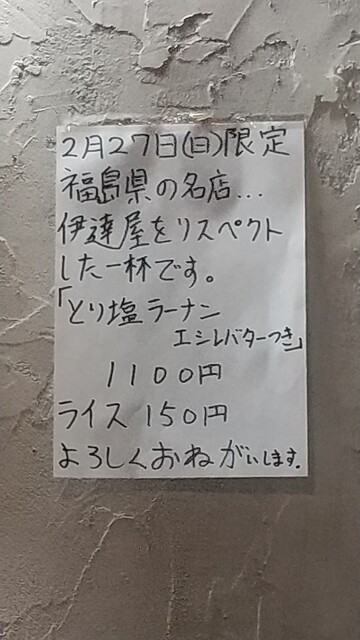 2月27日(日)限定
福島県の名店...
伊達屋をリスペクト
した一杯です。
「とり塩ラーメン
エシレバターつき」
1100円
ライス150円
よろしくおねがいします.